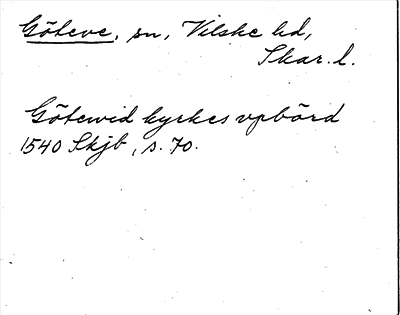 Göteve, sn, Vilske hd,
Skar. l.
Götewid kyrkes vpbörd
1540 Skjb, s. 70.